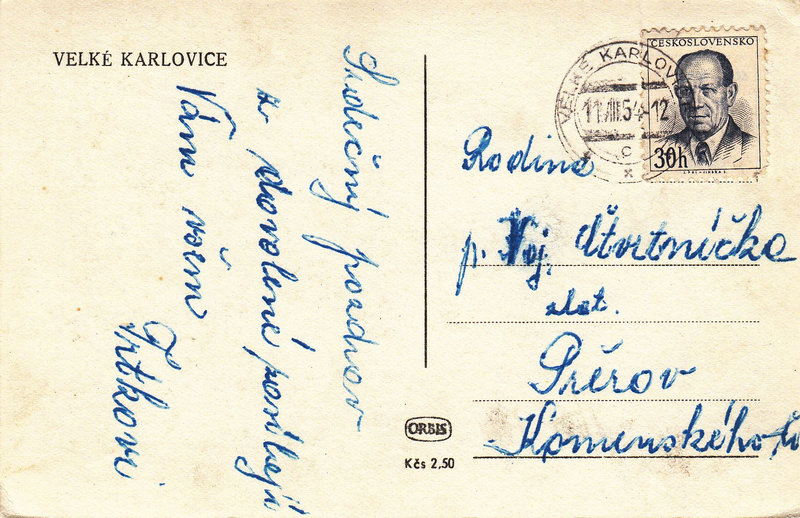 VELKÉ KARLOVICE
Srdečný pozdrav
z dovolené posílají
Vám všem
Trťkovi
ČESKOSLOVENSKO
30h
VELKÉ KARLOV
11.VIII.54-12
C
x
Rodina
p. Voj. Čtvrtníčka
Přerov
Komenského
ORBIS
Kčs 2,50